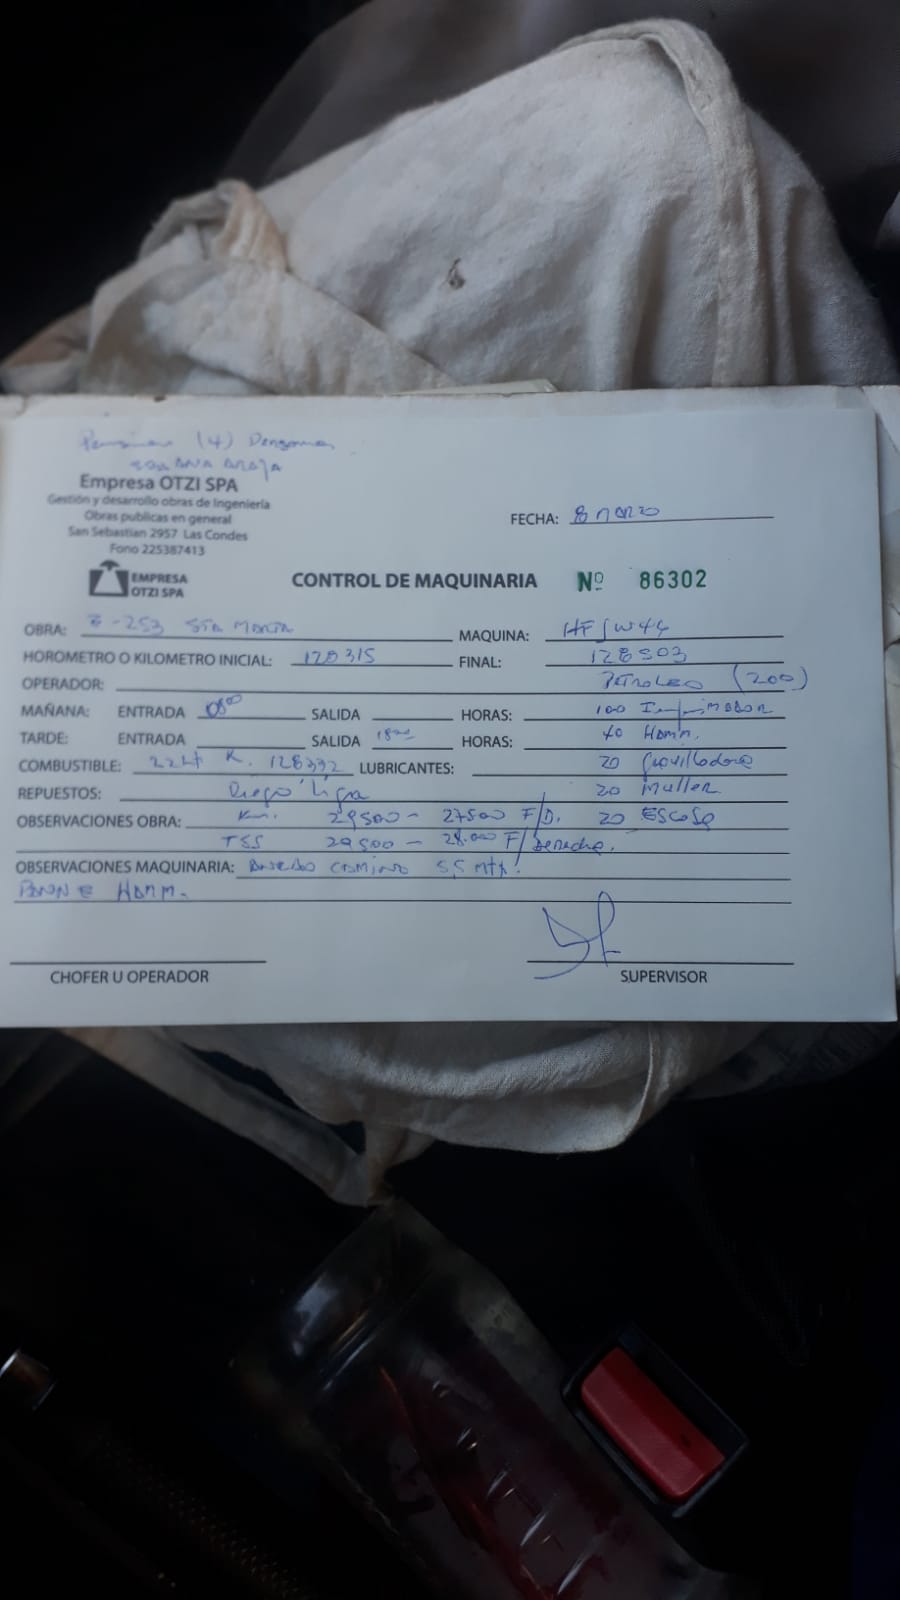 Pension (4) Personas
Empresa OTZI SPA
Gestión y desarrollo obras de Ingeniería
Obras publicas en general
San Sebastian 2957 Las Condes
Fono 225387413
FECHA: 8 MARZO
EMPRESA
OTZI SPA
CONTROL DE MAQUINARIA Nº 86302
OBRA: E-253 STA MARTA MAQUINA: HFJW44
HOROMETRO O KILOMETRO INICIAL: 128315 FINAL: 128503
OPERADOR: PETROLEO (200)
MAÑANA: ENTRADA 0800 SALIDA HORAS: 100 Imprimador
TARDE: ENTRADA SALIDA 1800 HORAS: 40 Hamm.
COMBUSTIBLE: 22Lt K. 128332 LUBRICANTES: 20 Gravilladora
REPUESTOS: Diego Lira 20 Muller
OBSERVACIONES OBRA: Km. 29500 - 27500 F/D. 20 ESCOBA
TSS 29500 - 28.000 F/Derecha.
OBSERVACIONES MAQUINARIA: CAMINO 5,5 Mts.
HAMM.
CHOFER U OPERADOR
SUPERVISOR